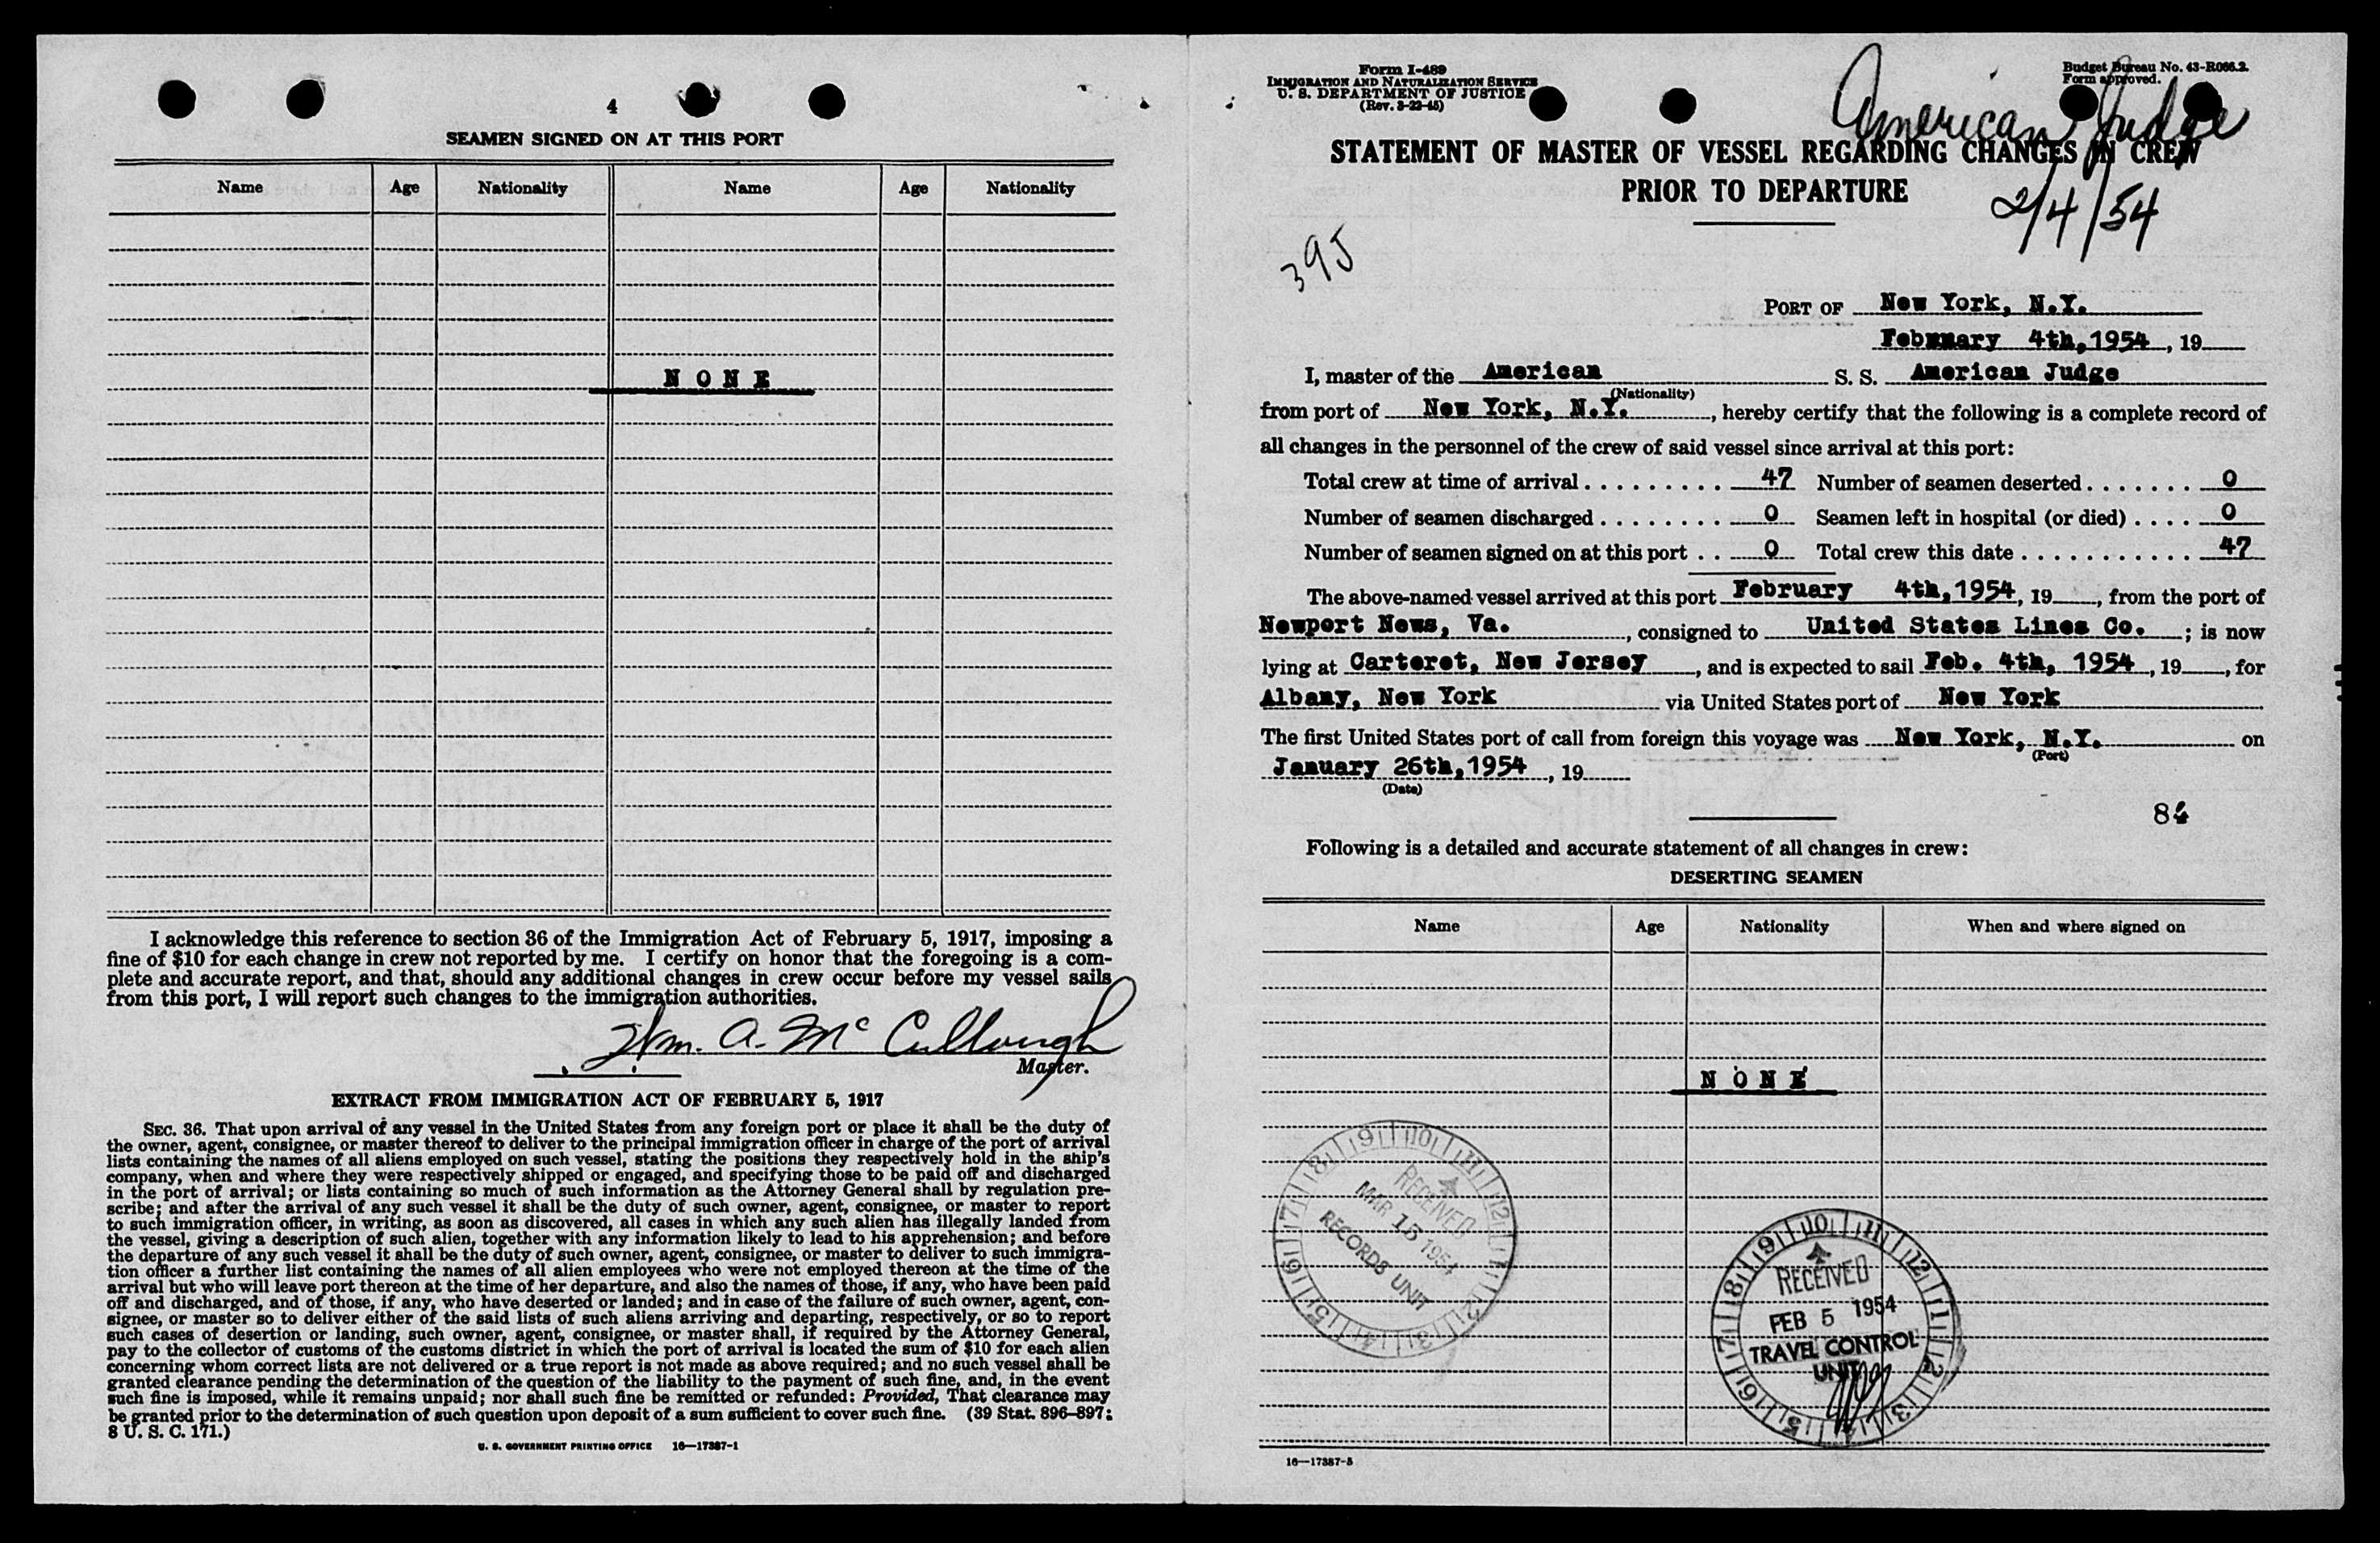 4
SEAMEN SIGNED ON AT THIS PORT
Name Age Nationality Name Age Nationality
NONE
I acknowledge this reference to section 36 of the Immigration Act of February 5, 1917, imposing a
fine of $10 for each change in crew not reported by me. I certify on honor that the foregoing is a com-
plete and accurate report, and that, should any additional changes in crew occur before my vessel sails
from this port, I will report such changes to the immigration authorities.
Wm. A. McCullough
Master.
EXTRACT FROM IMMIGRATION ACT OF FEBRUARY 5, 1917
SEC. 36. That upon arrival of any vessel in the United States from any foreign port or place it shall be the duty of
the owner, agent, consignee, or master thereof to deliver to the principal immigration officer in charge of the port of arrival
lists containing the names of all aliens employed on such vessel, stating the positions they respectively hold in the ship's
company, when and where they were respectively shipped or engaged, and specifying those to be paid off and discharged
in the port of arrival; or lists containing so much of such information as the Attorney General shall by regulation pre-
scribe; and after the arrival of any such vessel it shall be the duty of such owner, agent, consignee, or master to report
to such immigration officer, in writing, as soon as discovered, all cases in which any such alien has illegally landed from
the vessel, giving a description of such alien, together with any information likely to lead to his apprehension; and before
the departure of any such vessel it shall be the duty of such owner, agent, consignee, or master to deliver to such immigra-
tion officer a further list containing the names of all alien employees who were not employed thereon at the time of the
arrival but who will leave port thereon at the time of her departure, and also the names of those, if any, who have been paid
off and discharged, and of those, if any, who have deserted or landed; and in case of the failure of such owner, agent, con-
signee, or master so to deliver either of the said lists of such aliens arriving and departing, respectively, or so to report
such cases of desertion or landing, such owner, agent, consignee, or master shall, if required by the Attorney General,
pay to the collector of customs of the customs district in which the port of arrival is located the sum of $10 for each alien
concerning whom correct lists are not delivered or a true report is not made as above required; and no such vessel shall be
granted clearance pending the determination of the question of the liability to the payment of such fine, and, in the event
such fine is imposed, while it remains unpaid; nor shall such fine be remitted or refunded: Provided, That clearance may
be granted prior to the determination of such question upon deposit of a sum sufficient to cover such fine. (39 Stat. 896-897;
8 U. S. C. 171.)
U. S. GOVERNMENT PRINTING OFFICE 16—17387-1
Form I-489
IMMIGRATION AND NATURALIZATION SERVICE
U. S. DEPARTMENT OF JUSTICE
(Rev. 3-22-45)
Budget Bureau No. 43-R066.2.
Form approved.
American Judge
STATEMENT OF MASTER OF VESSEL REGARDING CHANGES IN CREW
PRIOR TO DEPARTURE
2/4/54
395
PORT OF New York, N.Y.
February 4th, 1954, 19
I, master of the American S. S. American Judge
(Nationality)
from port of New York, N.Y., hereby certify that the following is a complete record of
all changes in the personnel of the crew of said vessel since arrival at this port:
Total crew at time of arrival . . . . . . . . . . 47 Number of seamen deserted . . . . . . . 0
Number of seamen discharged . . . . . . . . 0 Seamen left in hospital (or died) . . . . 0
Number of seamen signed on at this port . . 0 Total crew this date . . . . . . . . . . . 47
The above-named vessel arrived at this port February 4th, 1954, 19, from the port of
Newport News, Va., consigned to United States Lines Co. ; is now
lying at Carteret, New Jersey, and is expected to sail Feb. 4th, 1954, 19, for
Albany, New York via United States port of New York
The first United States port of call from foreign this voyage was New York, N.Y. on
(Port)
January 26th, 1954, 19
(Date)
Following is a detailed and accurate statement of all changes in crew:
DESERTING SEAMEN
Name Age Nationality When and where signed on
NONE
RECEIVED
MAR 15 1954
RECORDS UNIT
RECEIVED
FEB 5 1954
TRAVEL CONTROL
UNIT
16—17387-5